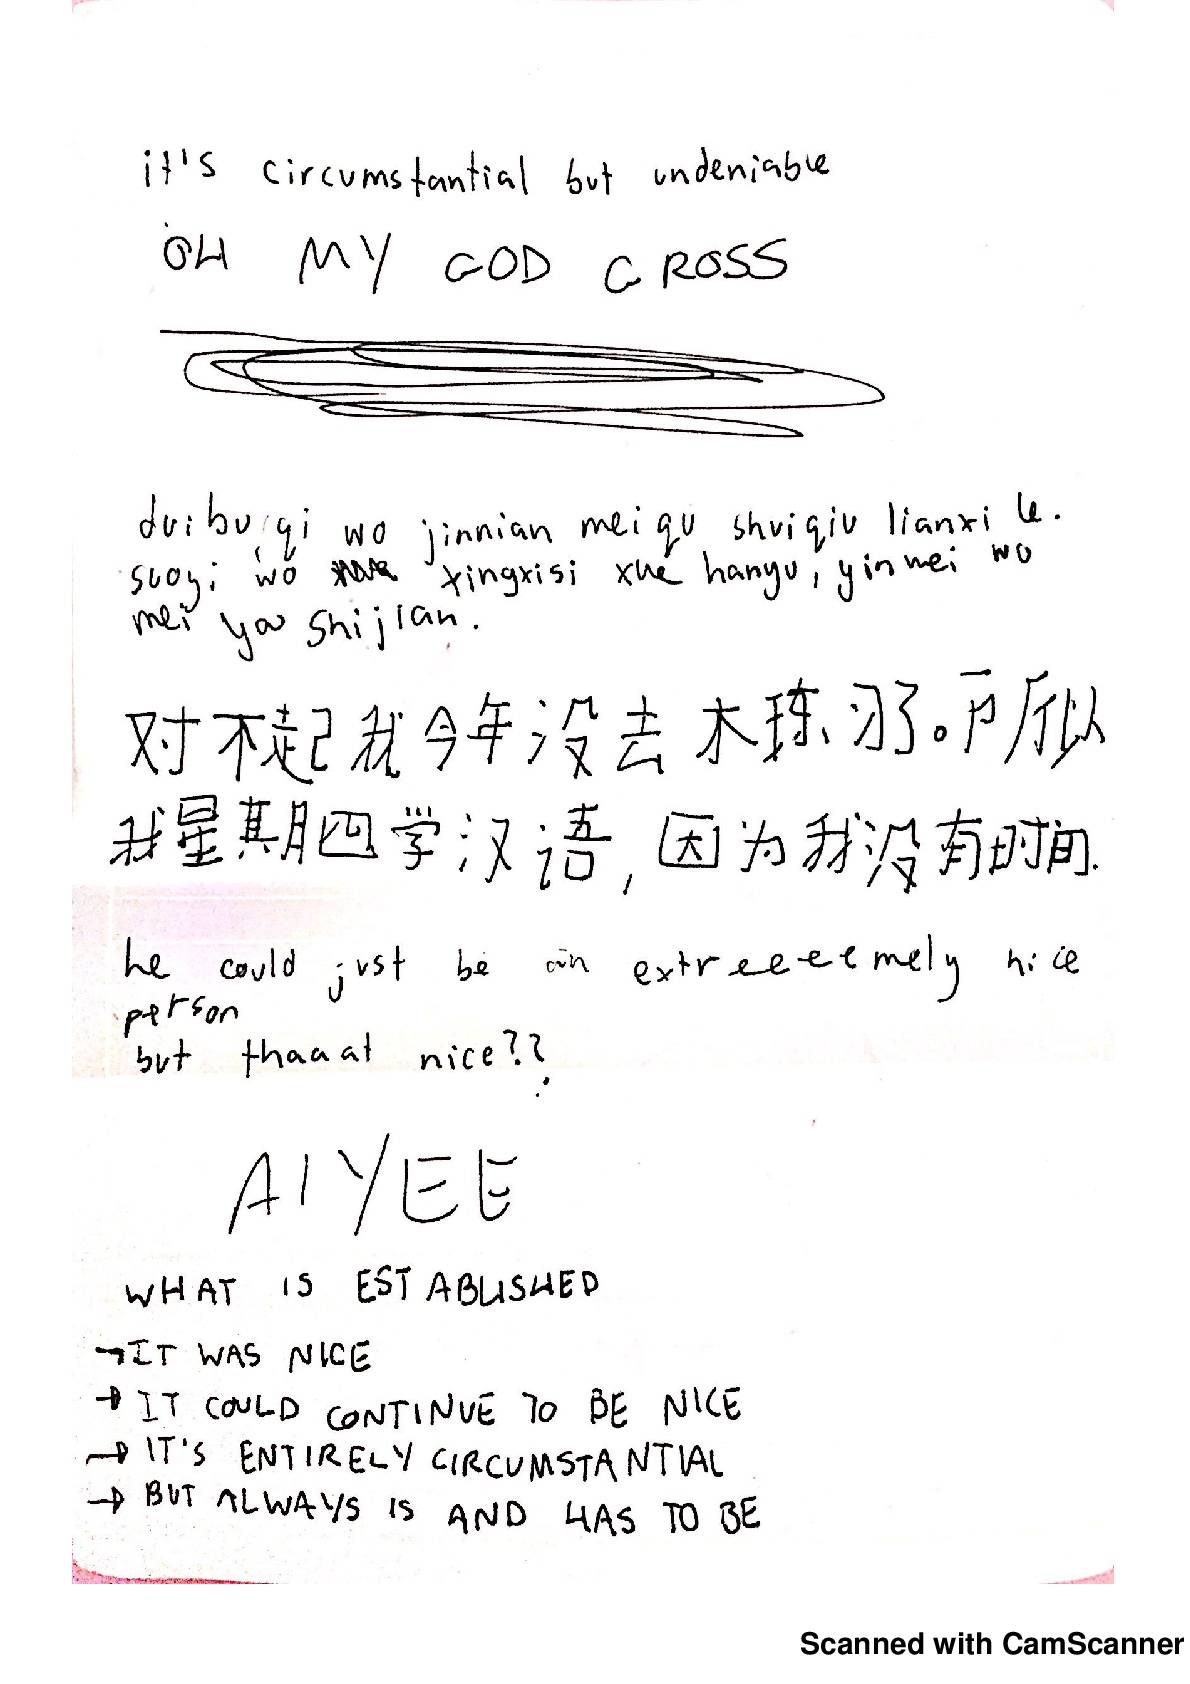 it's circumstantial but undeniable
OH MY GOD GROSS
duibuqi wo jinnian mei qu shuiqiu lianxi le.
suoyi wo xingxisi xue hanyu, yinwei wo
mei you shijian.
对不起我今年没去木球练习了。所以
我星期四学汉语,因为我没有时间.
he could just be an extreeeemely nice
person
but thaaat nice??
AIYEE
WHAT IS ESTABLISHED
→ IT WAS NICE
→ IT COULD CONTINUE TO BE NICE
→ IT'S ENTIRELY CIRCUMSTANTIAL
→ BUT ALWAYS IS AND HAS TO BE
Scanned with CamScanner